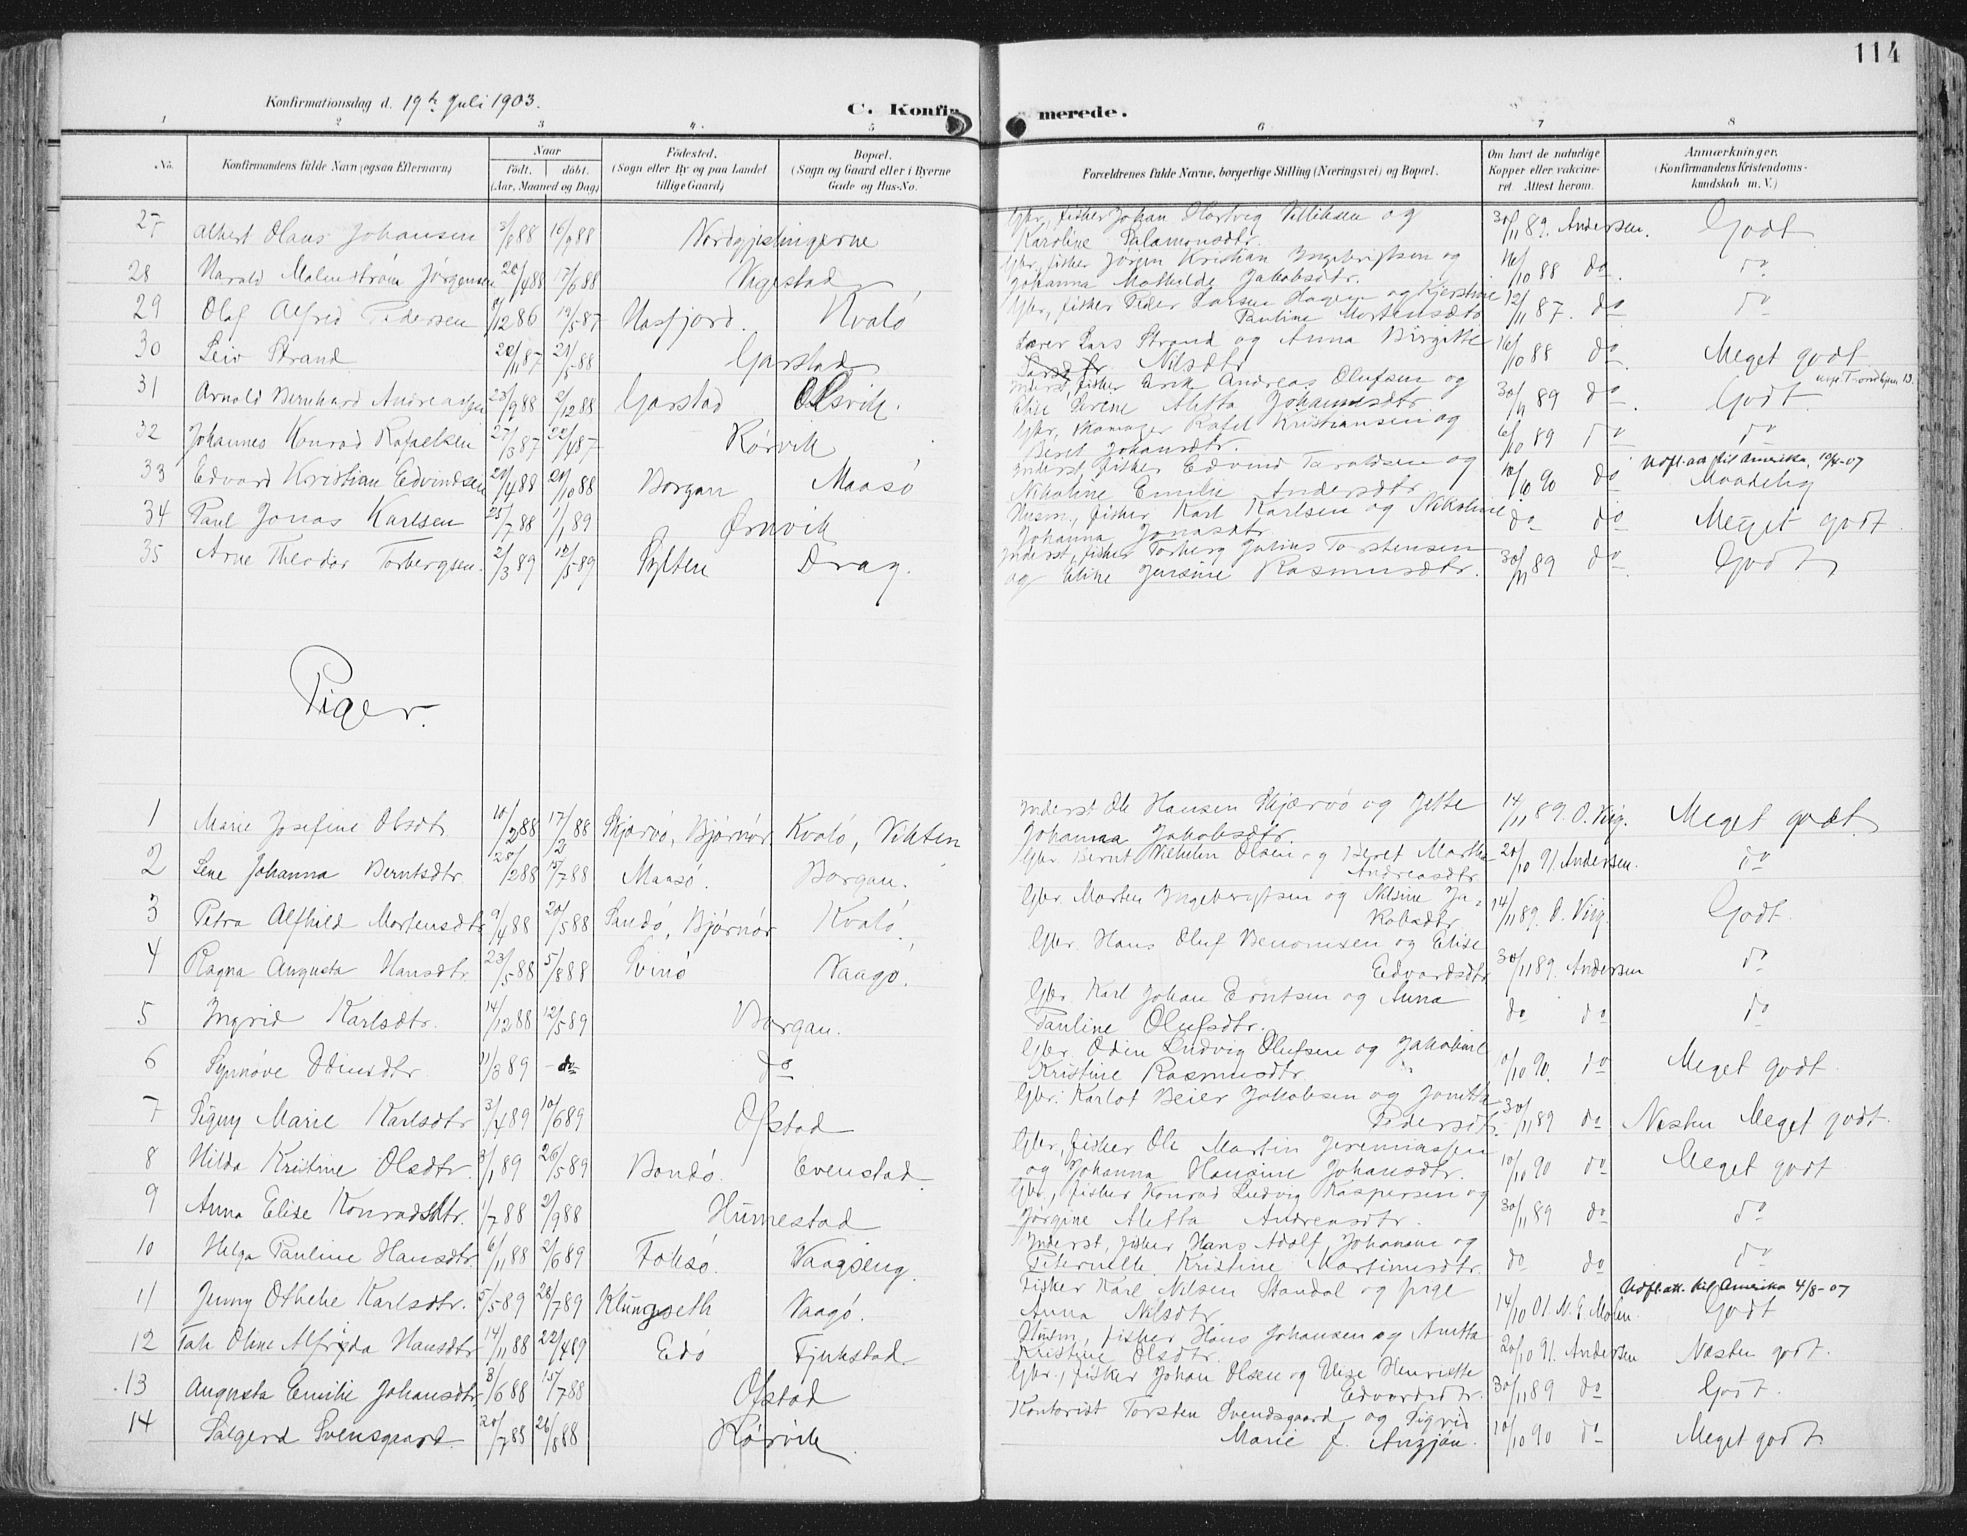 114
Konfirmationsdag d. 19de Juli 1903.
C. Konfir merede.
1 2 3 4. 5 6 7 8
No.
Konfirmandens fulde Navn (ogsaa Efternavn)
Naar
født. døbt.
(Aar, Maaned og Dag)
Fødested.
(Sogn eller By og paa Landet
tillige Gaard)
Bopæl.
(Sogn og Gaard eller i Byerne
Gade og Hus-No.
Forældrenes fulde Navne, borgerlige Stilling (Næringsvei) og Bopæl.
Om havt de naturlige
Kopper eller vakcine-
ret. Attest herom.
Anmærkninger.
(Konfirmandens Kristendoms-
kundskab m. V.)
27 Albert Olaus Johansen 3/8 88 16/9 88 Nordgjæslingerne Gbr., fisker Johan Hartvig Villiksen og
Karoline Salamonsdtr. 30/11 89. Andersen. Godt
28 Harald Malmstrøm Jørgensen 20/4 88 17/6 88 Vagestad Gbr., fisker Jørgen Kristian Ingebrigtsen og
Johanna Mathilde Jakobsdtr. 16/10 88 do do
29 Olaf Alfred Pedersen 9/12 86 19/5 87 Hasfjord. Kvalø Gbr., fisker Peder Larsen Hagen og Kjerstine
Pauline Mortensdtr 12/11 87. do do
30 Leiv Strand 20/11 87 21/5 88 Garstad Lærer Lars Strand og Anna Birgitte
Nilsdtr 16/10 88 do Meget godt
31 Arnold Bernhard Andreassen 23/9 88 2/12 88 Garstad Olsvik. Inderst, fisker Erik Andreas Olufsen og
Elise Serine Aletta Johannesdtr 30/11 89 do Godt
32 Johannes Konrad Rafaelsen 27/3 87 22/4 87 Rørvik Gbr., Skomager Rafael Kristiansen og
Beret Johansdtr. 6/10 89 do do
33 Edvard Kristian Edvindsen 20/4 88 20/10 88 Borgan Maasø Inderst, fisker Edvind Taraldsen og
Nikoline Emilie Andersdtr 10/10 90 do Udfl.att. til Amerika, 10/4-07
Maadelig
34 Paul Jonas Karlsen 25/7 88 1/1 89 Ørnvik Husm., fisker Karl Karlsen og Nikoline
Johanna Jonasdtr do do Meget godt
35 Arne Theodor Torbergsen. 2/3 89 12/5 89 Sylten Drag. Inderst, fisker Torberg Julius Torstensen
og Eline Jensine Rasmusdtr. 30/11 89 do Godt
Piger.
1 Marie Josefine Olsdtr 10/2 88 17/2 88 Skjærvø, Bjørnør Kvalø, Vikten Inderst Ole Hansen Skjærvø og Jette
Johanna Jakobsdtr. 14/11 89. O. Vig. Meget godt
2 Lene Johanna Berntsdtr. 28/2 88 15/7 88 Maasø. Borgan. Gbr. Bernt Vilhelm Olsen og Beret Martha
Andreasdtr 20/10 91. Andersen. do
3 Petra Alfhild Mortensdtr 9/4 88 20/5 88 Sandø, Bjørnør Kvalø. Gbr. Morten Ingebrigtsen og Nilsine Ja-
kobsdtr. 14/11 89. O. Vig. Godt.
4 Ragna Augusta Hansdtr. 23/5 88 5/8 88 Svinø Vaagø. Gbr. Hans Oluf Benonisen og Elise
Edvardsdtr 30/11 89. Andersen do
5 Ingrid Karlsdtr. 14/12 88 12/5 89 Borgan. Gbr. Karl Johan Berntsen og Anna
Pauline Olufsdtr. do do do
6 Synnøve Odinsdtr. 21/3 89 do do Gbr. Odin Ludvig Olufsen og Jakobine
Kristine Rasmusdtr. 10/10 90. do Meget godt.
7 Signy Marie Karlsdtr 3/4 89 10/6 89 Ofstad Gbr. Karlot Beier Jakobsen og Jonetta
Pedersdtr. 30/11 89 do Næsten Meget godt.
8 Hilda Kristine Olsdtr. 3/1 89 26/5 89 Bondø. Evenstad. Gbr., fisker Ole Martin Jeremiassen
og Johanna Hansine Johansdtr. 10/10 90 do Meget godt
9 Anna Elise Konradsdtr. 1/7 88 2/9 88 Hunnestad Gbr., fisker Konrad Ludvig Kaspersen og
Jørgine Aletta Andreasdtr. 30/11 89 do do
10 Helga Pauline Hansdtr. 6/11 88 2/6 89 Foksø. Vaagseng. Inderst, fisker Hans Adolf Johansen og
Peternelle Kristine Martinusdtr. do do do
11 Jenny Othelie Karlsdtr. 5/5 89 28/7 89 Klungseth Vaagø. Fisker Karl Nilsen Standal og pige
Anna Nilsdtr 14/10 01. N. E. Moen Udfl.att. til Amerika 4/8-07
Godt
12 Oline Alfrida Hansdtr 14/11 88 22/4 89 Edø Fjukstad. Husm., fisker Hans Johansen og Anetta
Kristine Olsdtr. 20/10 91. Andersen Næsten godt.
13 Augusta Emilie Johansdtr 3/6 88 15/7 88 Ofstad Gbr., fisker Johan Olsen og Elise Henriette
Edvardsdtr. 30/11 89 do Godt.
14 Salgerd Svensgaard. 20/7 88 26/8 88 Rørvik Kontorist Torsten Svendsgaard og Sigrid
Marie f. Anzjøn. 10/10 90 do Meget godt